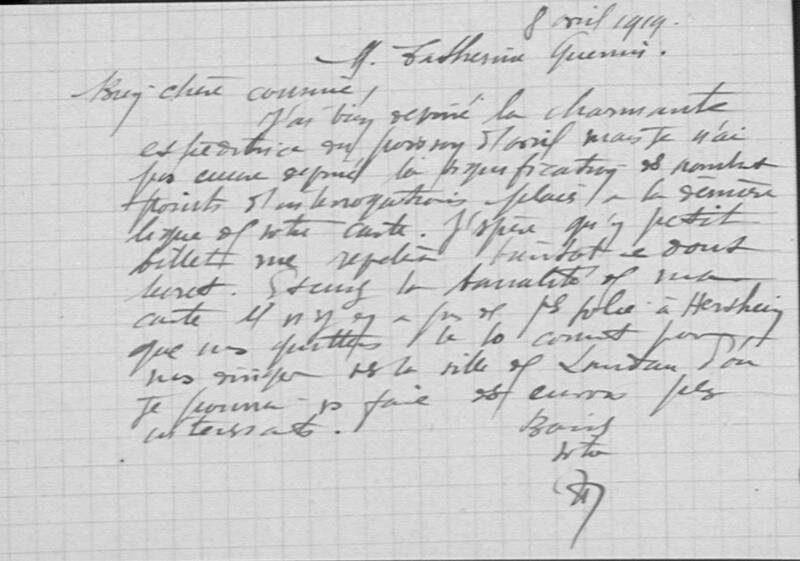 8 avril 1919.
M. Catherine Guerin.
Bien chère cousine,
J'ai bien deviné la charmante
expéditrice du poisson d'avril mais je n'ai
pas encore deviné la signification des nombreux
points d'interrogations placés à la dernière
ligne de votre carte. J'espère qu'un petit
billet me révélera bientôt ce doux
secret. Excusez la banalité de ma
carte il n'y en a pas de plus jolie à Herxheim
que nous quittons le 10 courant pour
nous diriger vers la ville de Landau d'où
je pourrai vous faire des envois plus
intéressants.
Baisers
votre